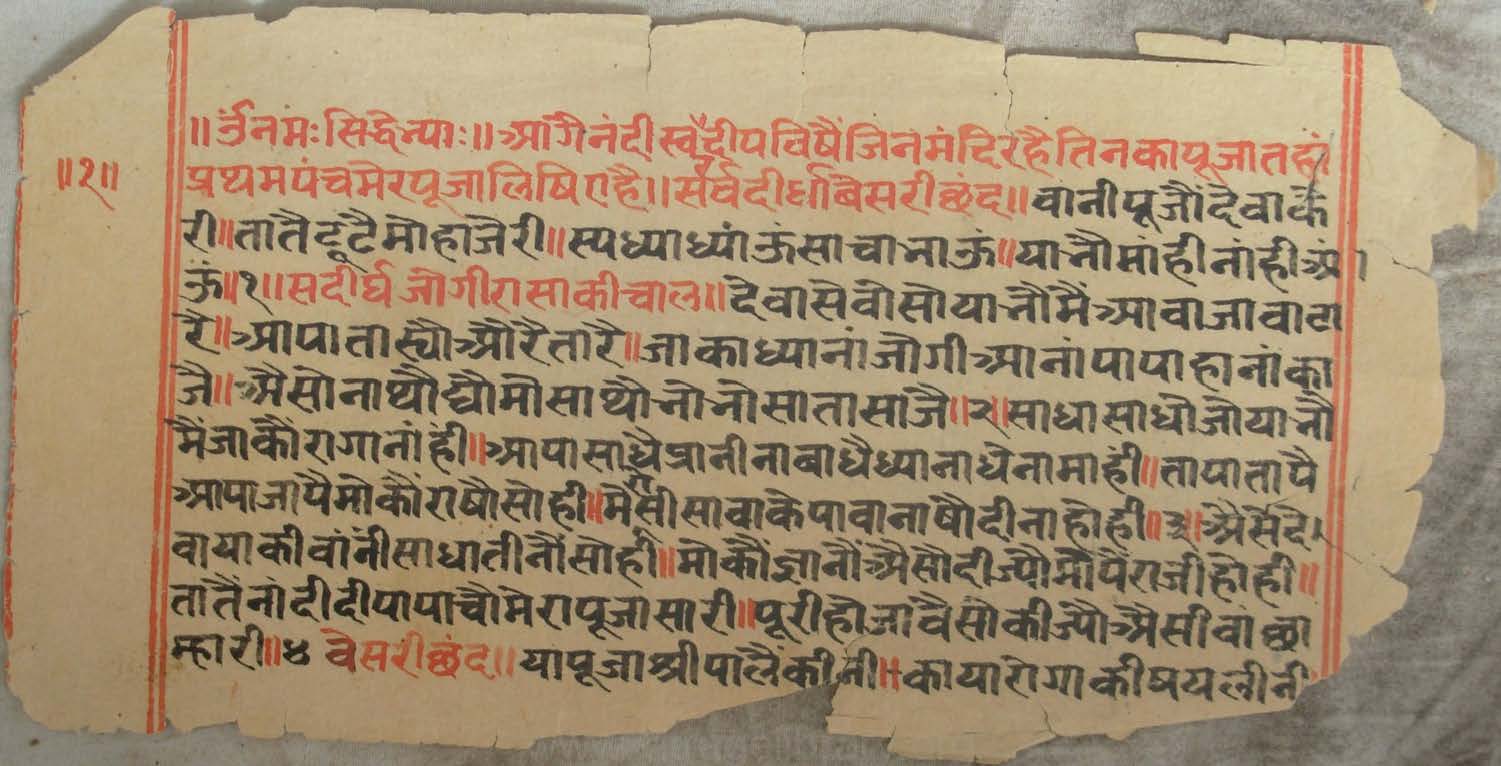 ॥ ॐनमः सिद्धेभ्यः ॥ आगैनंदीस्वरदीपविषैंजिनमंदिरहैतिनकापूजातहां
॥१॥
प्रथमपंचमेरपूजालिषिएहै ॥ सर्वदीर्घाबैसरीछंद ॥ वांनीपूजौंदेवाके
री ॥ तातैटूटैमोहाजेरी ॥ स्पध्याध्यांऊंसाचानाऊं ॥ यानौमांहीनांहीआं
ऊं ॥१॥ सदीर्घजोगीरासाकीचाल ॥ देवासेवोसोयानौमैंआवाजावाटा
रै ॥ आपातास्यौऔरैतारै ॥ जाकाध्यानांजोगीआनांपापाहानांका
जै ॥ ऐसोनाथौद्यौमोसाथौनोनोसातासाजै ॥२॥ साधासाधोजोयानौ
मैंजाकौरागानांहीं ॥ आपासाधैप्रानीनाबाधैध्यानाधेनामाहीं ॥ तापातापै
आपाजापैमोकौंराषौसोही ॥ मेरीसीसावाकेपावानाषौदीनाहोही ॥३॥ ऐसेंदे
वायाकीवांनीसाधातीनौंसोही ॥ मोकौंज्ञानौंऐसौदीज्यौमोपैराजीहोही ॥
तातैंनांदीदीपापाचौमेरापूजासारी ॥ पूरीहोजावैसौकीज्यौऐसीवांछा
म्हारी ॥४ बेसरीछंद ॥ यापूजाश्रीपालैंकीनी ॥ कायारोगाकीषयलीनी